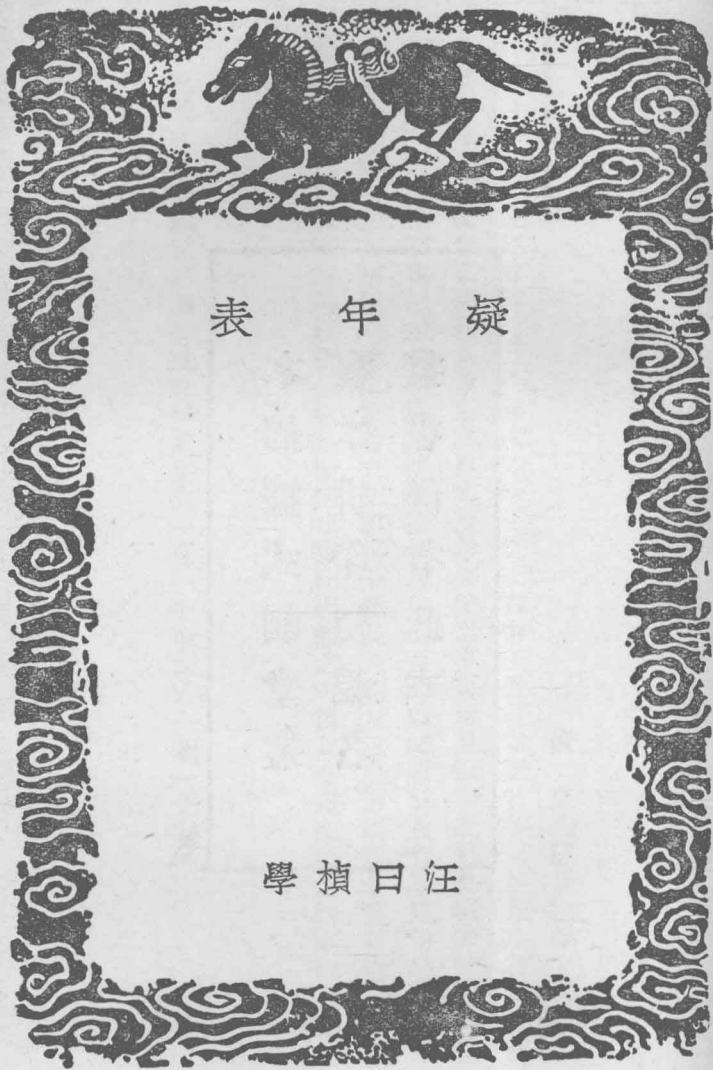 疑年表
汪曰楨學